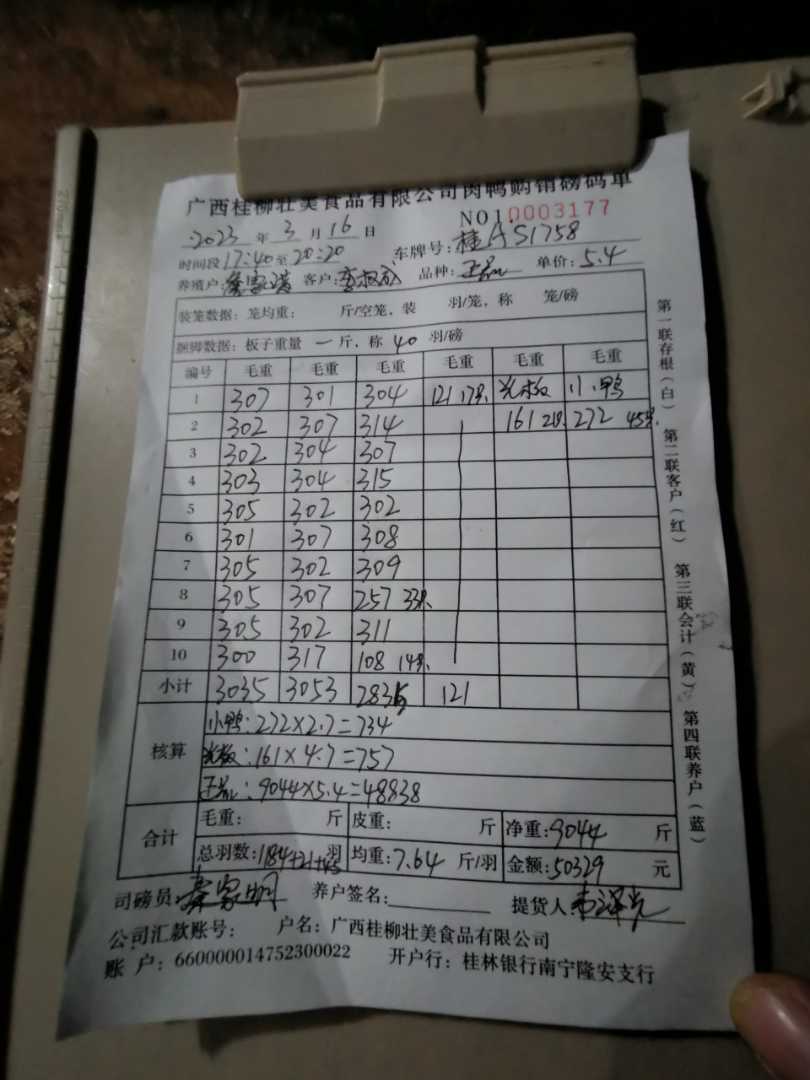 广西桂柳壮美食品有限公司肉鸭购销磅码单
NO10003177
2023 年 3 月 16 日
时间段 17:40至20:20 车牌号: 桂AS1758
养殖户: 客户: 品种: 单价: 5.4
装笼数据: 笼均重: 斤/空笼, 装 羽/笼, 称 笼/磅
捆脚数据: 板子重量 一 斤, 称 40 羽/磅
编号 毛重 毛重 毛重 毛重 毛重 毛重
1 307 301 304 121 17只 光板 小鸭
2 302 307 314 161 21只 272 45只
3 302 304 307
4 303 304 315
5 305 302 302
6 301 307 308
7 305 302 309
8 305 307 257 33只
9 305 302 311
10 300 317 108 14只
小计 3035 3053 2835 121
核算
小鸭: 272×2.7=734
光板: 161×4.7=757
正品: 9044×5.4=48838
合计 毛重: 斤 皮重: 斤 净重: 9044 斤
总羽数: 1184+21+45 羽 均重: 7.64 斤/羽 金额: 50329 元
司磅员: 秦家明 养户签名: 提货人:
公司汇款账号: 户名: 广西桂柳壮美食品有限公司
账 户: 660000014752300022 开户行: 桂林银行南宁隆安支行
第一联存根(白) 第二联客户(红) 第三联会计(黄) 第四联养户(蓝)